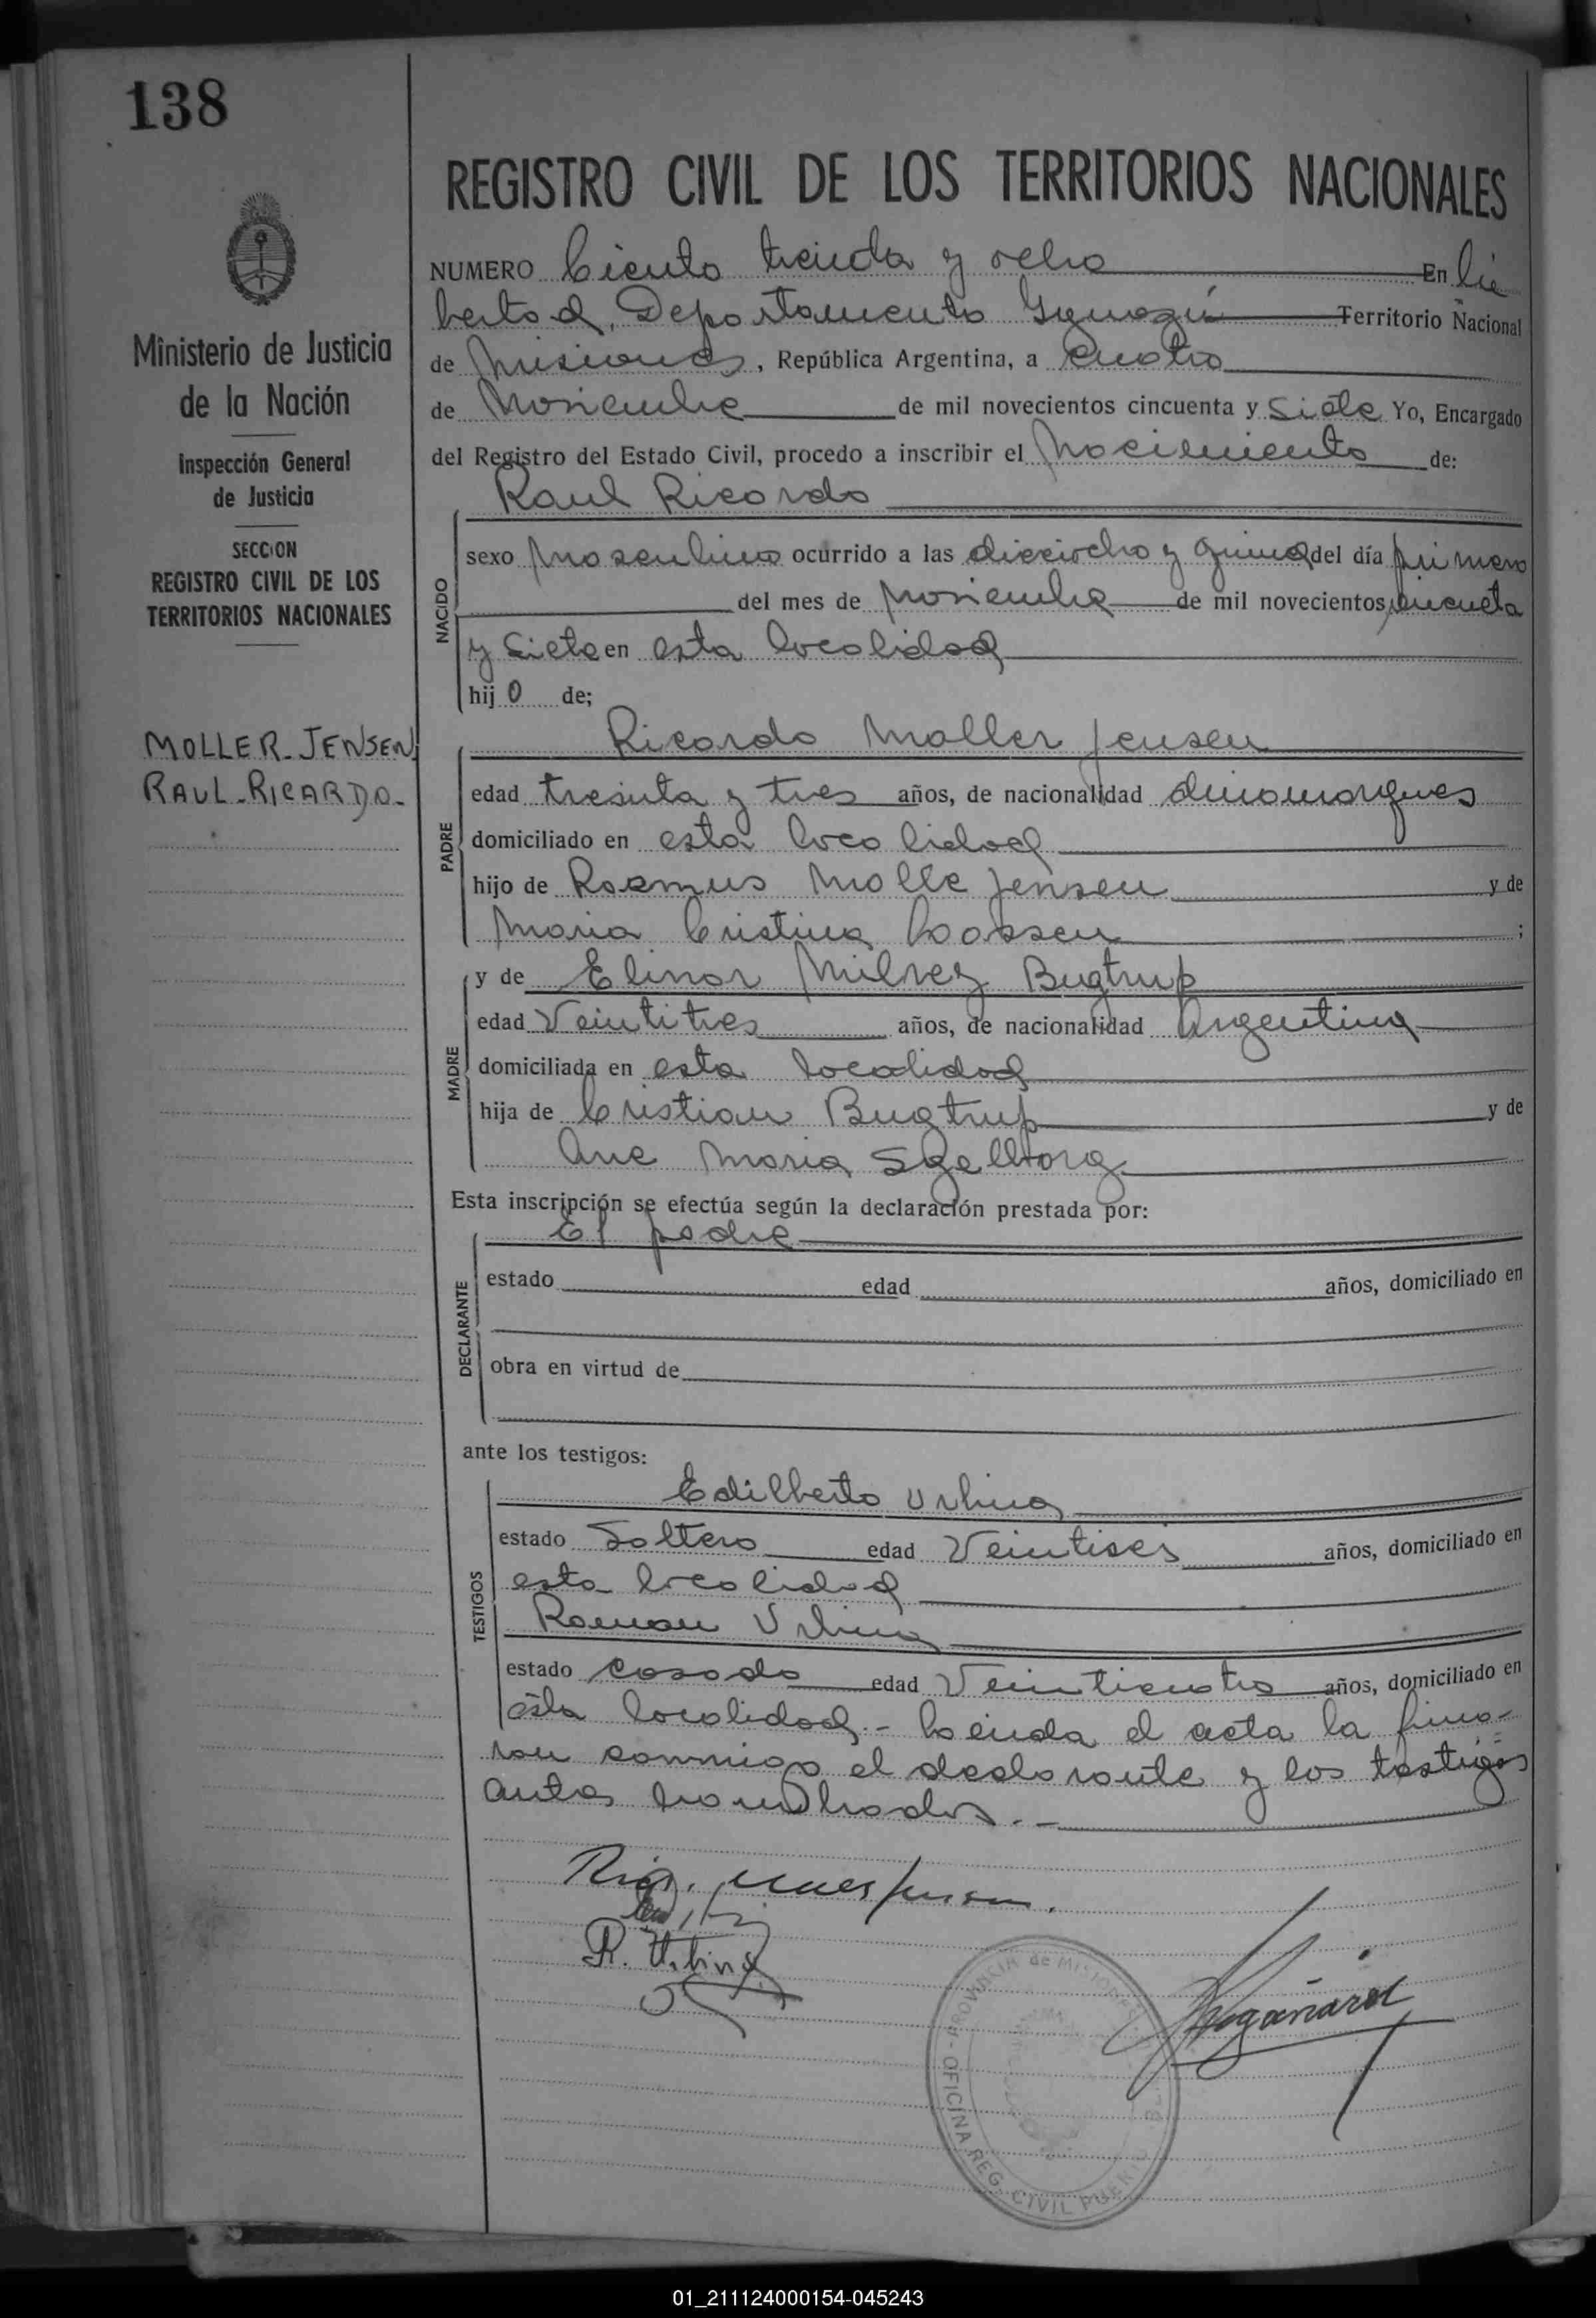 138
Ministerio de Justicia
de la Nación
Inspección General
de Justicia
SECCION
REGISTRO CIVIL DE LOS
TERRITORIOS NACIONALES
MOLLER-JENSEN
RAUL-RICARDO-
REGISTRO CIVIL DE LOS TERRITORIOS NACIONALES
NUMERO Ciento treinta y ocho En Li
bertad, Departamento Yguazú Territorio Nacional
de Misiones, República Argentina, a cuatro
de Noviembre de mil novecientos cincuenta y siete Yo, Encargado
del Registro del Estado Civil, procedo a inscribir el Nacimiento de:
Raul Ricardo
NACIDO
sexo Masculino ocurrido a las dieciocho y quince del día primero
del mes de Noviembre de mil novecientos cincuenta
y siete en esta localidad
hijo de;
PADRE
Ricardo Moller Jensen
edad treinta y tres años, de nacionalidad dinamarques
domiciliado en esta localidad
hijo de Rasmus Molle Jensen y de
Maria Cristina Loassen;
MADRE
y de Elinor Milrez Bugtrup
edad Veintitres años, de nacionalidad Argentina
domiciliada en esta localidad
hija de Cristian Bugtrup y de
Ane Maria
Esta inscripción se efectúa según la declaración prestada por:
El padre
DECLARANTE
estado edad años, domiciliado en
obra en virtud de
ante los testigos:
TESTIGOS
Edilberto Urbina
estado Soltero edad Veintiseis años, domiciliado en
esta localidad
Roman Urbina
estado casado edad Veinticuatro años, domiciliado en
esta localidad.- Leida el acta la firma-
ron conmigo el declarante y los testigos
antes nombrados.-
R. Urbina
PROVINCIA de MISIONES
OFICINA REG. CIVIL PUERTO
01_211124000154-045243